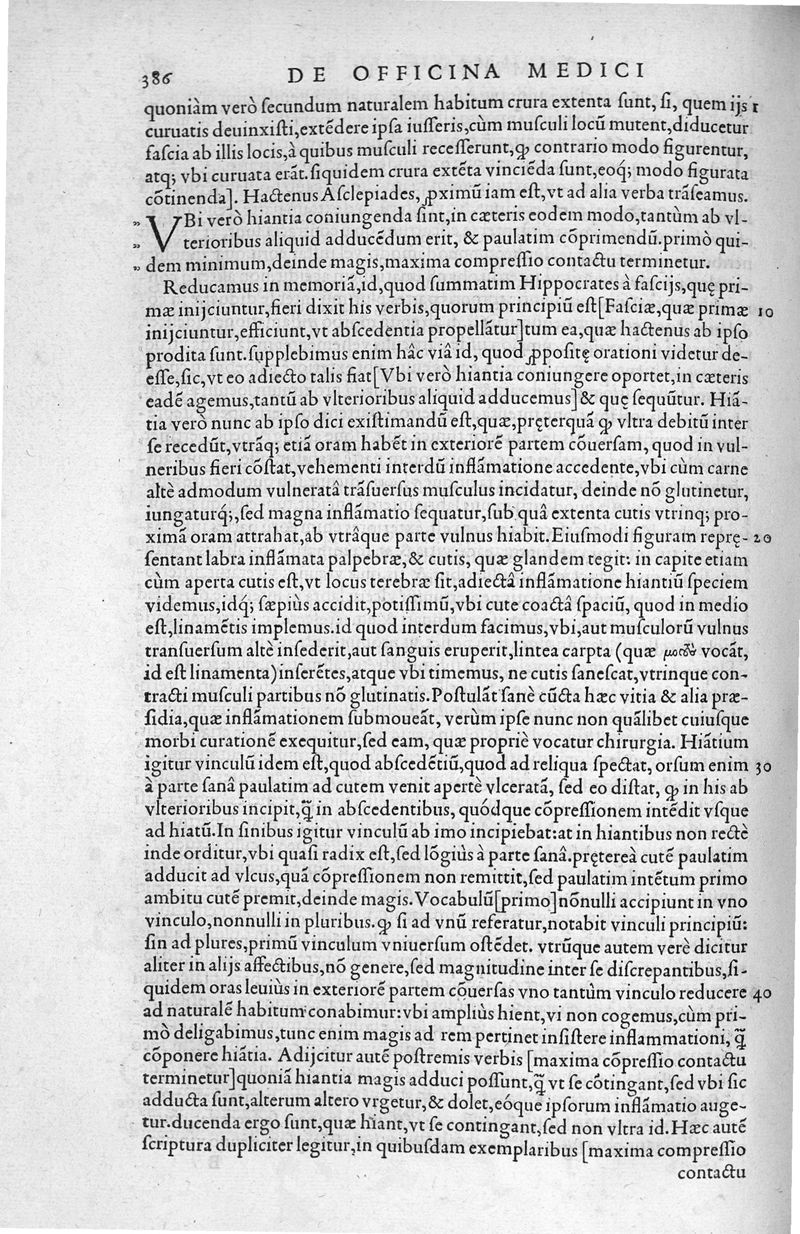 386 DE OFFICINA MEDICI
quoniàm verò ſecundum naturalem habitum crura extenta ſunt, ſi, quem ijs 1
curuatis deuinxiſti,extẽdere ipſa iuſſeris,cùm muſculi locũ mutent,diducetur
faſcia ab illis locis,à quibus muſculi receſſerunt,ꝙ contrario modo figurentur,
atq; vbi curuata erãt.ſiquidem crura extẽta vinciẽda ſunt,eoq́; modo figurata
cõtinenda]. Hactenus Aſclepiades, ꝓximũ iam eſt,vt ad alia verba trãſeamus.
„ VBi verò hiantia coniungenda ſint,in cæteris eodem modo,tantùm ab vl-
„ terioribus aliquid adducẽdum erit, & paulatim cõprimendũ.primò qui-
„ dem minimum,deinde magis,maxima compreſſio contactu terminetur.
Reducamus in memoriã,id,quod ſummatim Hippocrates à faſcijs,quę pri-
mæ inijciuntur,fieri dixit his verbis,quorum principiũ eſt[Faſciæ,quæ primæ 10
inijciuntur,efficiunt,vt abſcedentia propellãtur]tum ea,quæ hactenus ab ipſo
prodita ſunt.ſupplebimus enim hâc viâ id, quod ꝓpoſitę orationi videtur de-
eſſe,ſic,vt eo adiecto talis fiat[Vbi verò hiantia coniungere oportet,in cæteris
eadẽ agemus,tantũ ab vlterioribus aliquid adducemus]& quę ſequũtur. Hiã-
tia verò nunc ab ipſo dici exiſtimandũ eſt,quæ,pręterquã ꝙ vltra debitũ inter
ſe recedũt,vtrãq; etiã oram habẽt in exteriorẽ partem cõuerſam, quod in vul-
neribus fieri cõſtat,vehementi interdũ inflãmatione accedente,vbi cùm carne
altè admodum vulneratâ trãſuerſus muſculus incidatur, deinde nõ glutinetur,
iungaturq́;,ſed magna inflãmatio ſequatur,ſub quâ extenta cutis vtrinq; pro-
ximã oram attrahat,ab vtrâque parte vulnus hiabit.Eiuſmodi figuram reprę- 20
ſentant labra inflãmata palpebræ,& cutis, quæ glandem tegit: in capite etiam
cùm aperta cutis eſt,vt locus terebræ ſit,adiectâ inflãmatione hiantiũ ſpeciem
videmus,idq́; ſæpiùs accidit,potiſſimũ,vbi cute coactâ ſpaciũ, quod in medio
eſt,linamẽtis implemus.id quod interdum facimus,vbi,aut muſculorũ vulnus
tranſuerſum altè inſederit,aut ſanguis eruperit,lintea carpta (quæ vocãt,
id eſt linamenta)inſerẽtes,atque vbi timemus, ne cutis ſaneſcat,vtrinque con-
tracti muſculi partibus nõ glutinatis.Poſtulãt ſanè cũcta hæc vitia & alia præ-
ſidia,quæ inflãmationem ſubmoueãt, verùm ipſe nunc non quãlibet cuiuſque
morbi curationẽ exequitur,ſed eam, quæ propriè vocatur chirurgia. Hiãtium
igitur vinculũ idem eſt,quod abſcedẽtiũ,quod ad reliqua ſpectat, orſum enim 30
à parte ſanâ paulatim ad cutem venit apertè vlceratã, ſed eo diſtat, ꝙ in his ab
vlterioribus incipit,q̃ in abſcedentibus, quódque cõpreſſionem intẽdit vſque
ad hiatũ.In ſinibus igitur vinculũ ab imo incipiebat:at in hiantibus non rectè
inde orditur,vbi quaſi radix eſt,ſed lõgiùs à parte ſanâ.pręttereà cutẽ paulatim
adducit ad vlcus,quã cõpreſſionem non remittit,ſed paulatim intẽtum primo
ambitu cutẽ premit,deinde magis.Vocabulũ[primo]nõnulli accipiunt in vno
vinculo,nonnulli in pluribus.ꝙ ſi ad vnũ referatur,notabit vinculi principiũ:
ſin ad plures,primũ vinculum vniuerſum oſtẽdet. vtrũque autem verè dicitur
aliter in alijs affectibus,nõ genere,ſed magnitudine inter ſe diſcrepantibus,ſi-
quidem oras leuiùs in exteriorẽ partem cõuerſas vno tantùm vinculo reducere 40
ad naturalẽ habitum conabimur:vbi ampliùs hient,vi non cogemus,cùm pri-
mò deligabimus,tunc enim magis ad rem pertinet inſiſtere inflammationi, q̃
cõponere hiãtia. Adijcitur autẽ poſtremis verbis [maxima cõpreſſio contactu
terminetur]quoniã hiantia magis adduci poſſunt,q̃ vt ſe cõtingant,ſed vbi ſic
adducta ſunt,alterum altero vrgetur,& dolet,eóque ipſorum inflãmatio auge-
tur.ducenda ergo ſunt,quæ hiant,vt ſe contingant,ſed non vltra id.Hæc autẽ
ſcriptura dupliciter legitur,in quibuſdam exemplaribus [maxima compreſſio
contactu